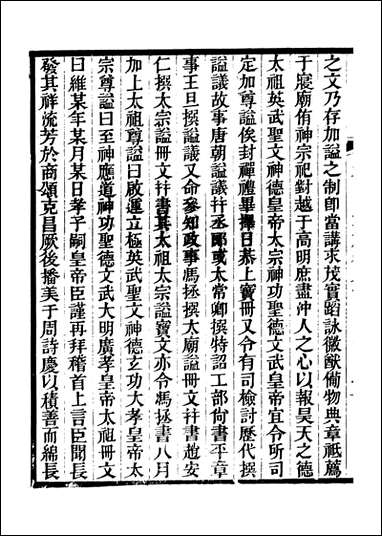 之文乃存加謚之制即當講求茂實蹈詠徽猷備物典章祇薦
于寢廟侑神宗祀對越于高明庶盡沖人之心以報昊天之德
太祖英武聖文神德皇帝太宗神功聖德文武皇帝宜令所司
定加尊謚俟封禪禮畢擇日恭上寶冊又令有司檢討歷代撰
謚議故事唐朝謚議幷丞郎或太常卿撰特詔工部尙書平章
事王旦撰謚議又命參知政事馮拯撰太廟謚冊文幷書趙安
仁撰太宗謚冊文幷書其太祖太宗謚寶文亦令馮拯書八月
加上太祖尊謚曰啟運立極英武聖文神德玄功大孝皇帝太
宗尊謚曰至神應道神功聖德文武大明廣孝皇帝太祖冊文
曰維某年某月某日孝子嗣皇帝臣謹再拜稽首上言臣聞長
發其祥流芳於商頌克昌厥後播美于周詩慶以積善而綿長